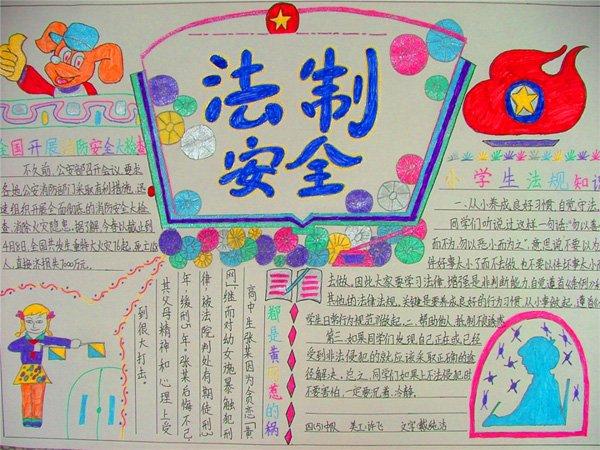 法制
安全
全国开展消防安全大检查
不久前,公安部召开会议,要求
各地公安消防部门采取有利措施,迅
速组织开展全面彻底的消防安全大检
查,消除火灾隐患。据了解,今春以截止到
4月8日,全国共发生着特大火灾76起,死亡
人,直接济损7000万元。
小学生法规知识
一、从小养成良好习惯自觉守法。
同学们听说过这样一句话“勿以善小
而不为,勿以恶小而为之”意思说不要以为
件好事太小了而不去做,也不要以件坏事太小
去做。因此大家要学习法律,增强是非判断能力自觉遵首《条例》和
其他的法律法规。关键是要养成良好的行为习惯,从小事做起,遵首《小
学生日常行为规范》做起。二、帮助他人,抵制和诱惑
第二、如果同学们发现自己正在或已经
受到非法侵犯的就应该采取正确的途
径解决,总之,同学们如果上不法侵犯时
不要害怕,一定要沉着、冷静。
都是黄网惹的祸
高中生张某因为贪恋“黄
网”,继而对幼女施暴触犯刑
律,被法院判处有期徒刑3
年,缓刑5年,张某后悔不已
其父母精神和心理上受
到很大打击。
四(5)中队 美工:许飞 文字:戴纯洁